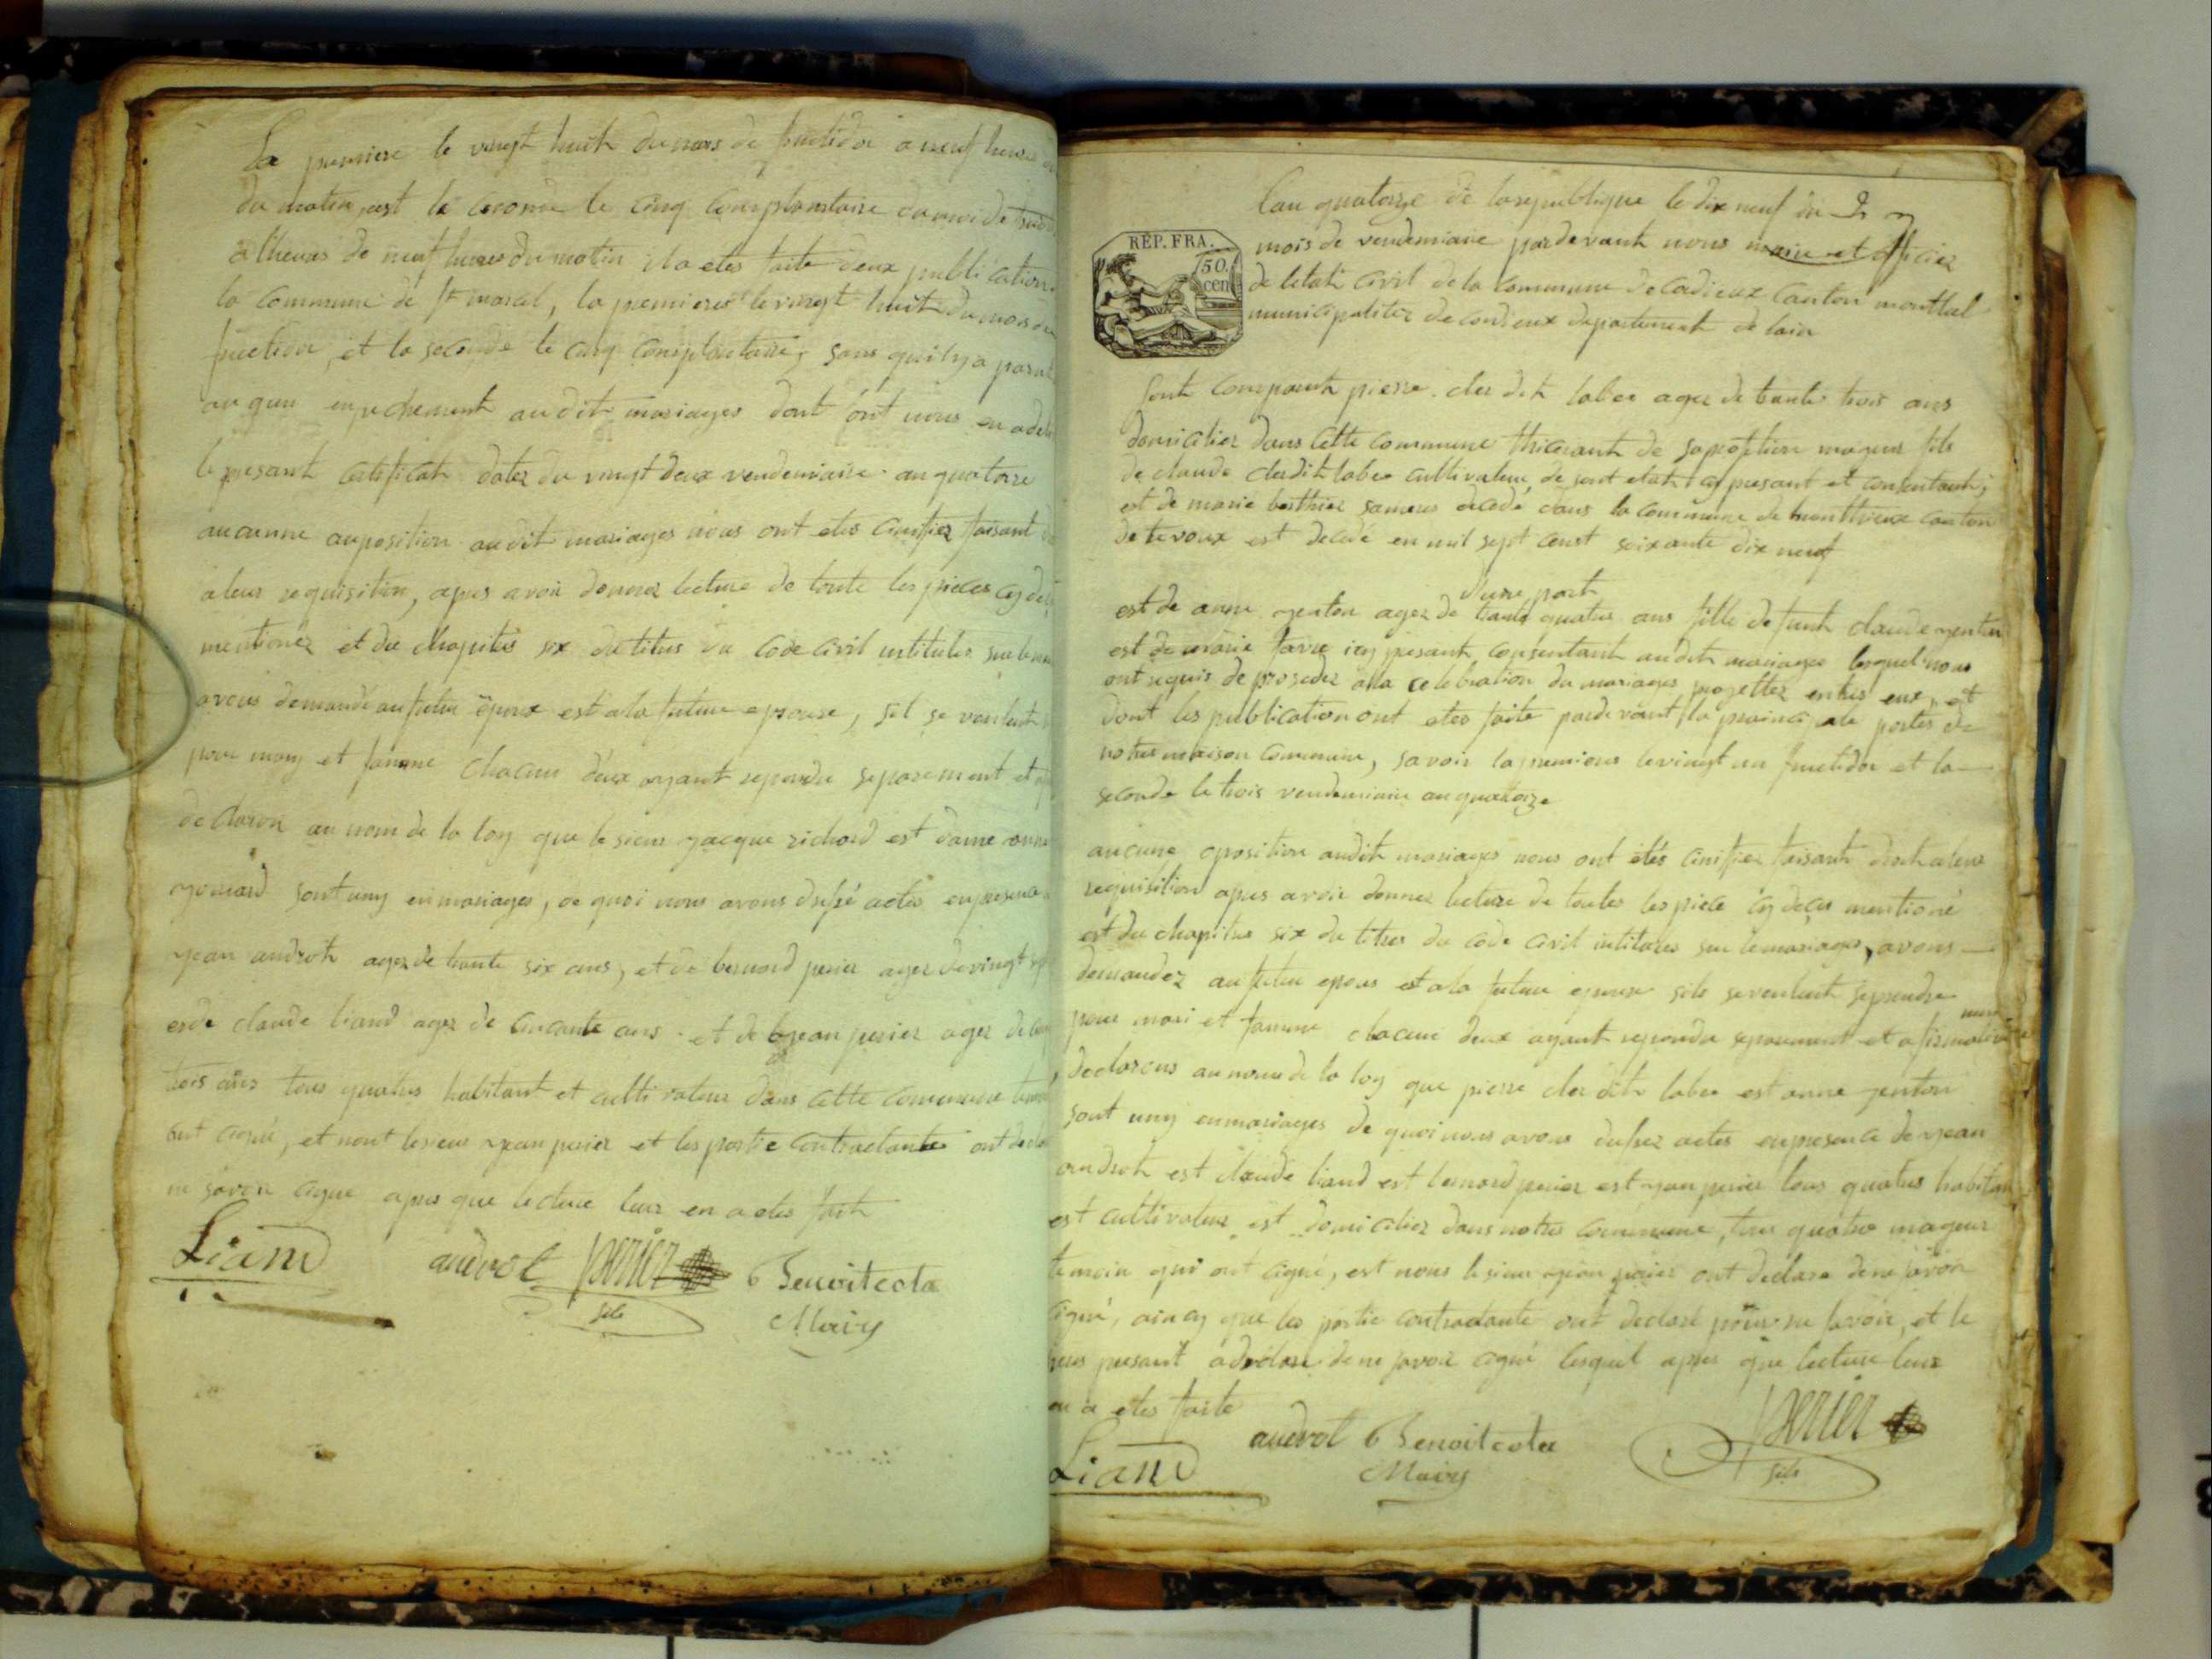 La premiere le vingt huit du mois de fructidor a neuf heures
du matin, est la seconde le cinq complantaire du moi de
a lheures de neuf heures du matin il a etes faite deux publication
la Commune de st marcel, la premieres le vingt huit du mois de
fruction, et la seconde le cinq complantaire, sans quil y a parut
au qun enpechement au dit mariages dont ont nous en a
le presant certificat dates du vingt deux vendemiaire an quatorze
aucunne auposition audit mariages nous ont etes cinifiez faisant
a leur requisition, apres avoir donner lecture de toute les pieces cy
mentionéz et du chapitre six du titres du code civil intitules sur le
avons demandé au futur époux est a la future epouse, sil se veulent
pour mary et famme chacun deux ayant repondu separement et
declaron au nom de la loy que le sieur jacque richard est dame anne
gomard sont uny en mariages, de quoi nous avons dressé actes en presence
jean androt agez de trante six ans, et de bernard perier agez de vingt
et de claude liand agez de cincante ans et de jean perier agez de
trois ans tous quatres habitant et cultivateur dans cette commune
ont cigné, et nont le sieur jean perier et les partie contractante ont
ne savoir cigne apres que lecture leur en a etes fait
Liand androt perier Benoit cota
fils Mairy
Lan quatorze de la republique le dix neuf du
RÉP. FRA.
50 cen
mois de vendemiaire pardevant nous maire et officier
de letat civil de la commune de Cordieux Canton montluel
municipalitez de cordieux departement de lain
sont comparut pierre cler dit labee agez de trante trois ans
domicilier dans cette commune de sa profetion mageur fils
de claude cler dit labee cultivateur de sont etat icy presant et consentant,
est de marie berthier sa mere decedé dans la commune de monthieux canton
de trevoux est decedé en mil sept censt soixante dix neuf
d'une part
est de anne jenton agez de trante quatres ans fille de funt claude jenton
est de marie favre icy presant consentant audit mariages lesquel nous
ont requis de proseder a la celebration du mariages projettez entres eux, et
dont les publication ont etes faite pardevant la principale portes de
notres maison commune, savoir la premiere le vingt un fructidor et la
seconde le trois vendemiaire an quatorze
aucune oposition audit mariages nous ont étés cinifier faisant droit a leur
requisition apres avoir donner lecture de toutes les piece cy deçus mentioné
est du chapitre six du titres du code civil intitures sur le mariages, avons
demandez au futur epous est a la future epouse sils se veulent seprendre
pour mari et famme chacun deux ayant repondu separement et afirmativement
declarons au nom de la loy que pierre cler dit labee est anne jenton
sont uny en mariages de quoi nous avons dressez actes en presence de jean
androt est claude liand est bernard perier est jean perier tous quatres habitant
est cultivateur est domicilier dans notres commune, tous quatre mageur
temoin qui ont cigné, est nous le sieur jean perier ont declare de ne savoir
cigné, aincy que les partie contractante ont declaré pour ne savoir, et le
peres presant a declare de ne savoir cigné lesquel apres que lecture leur
en a etes faite
Liand androt Benoit cota perier
Mairy fils